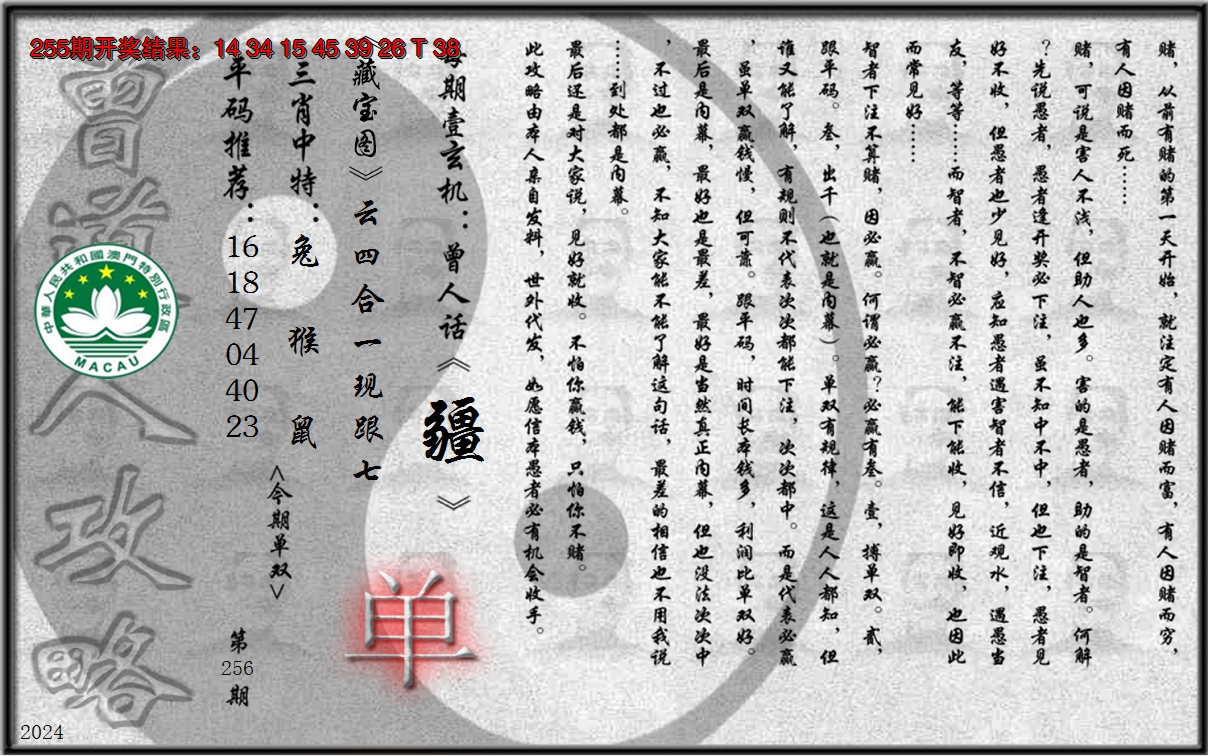 255期开奖结果：14 34 15 45 39 26 T 38
赌，从前有赌的第一天开始，就注定有人因赌而富，有人因赌而穷，
有人因赌而死……
赌，可说是害人不浅，但助人也多。害的是愚者，助的是智者。何解
？先说愚者，愚者逢开奖必下注，虽不知中不中，但也下注，愚者见
好不收，但愚者也少见好，应知愚者遇害智者不信，近观水，遇愚当
友，等等……而智者，不智必赢不注，能下能收，见好即收，也因此
而常见好……
智者下注不算赌，因必赢。何谓必赢？必赢有叁。壹，搏单双。贰，
跟平码。叁，出千（也就是内幕）。单双有规律，这是人人都知，但
谁又能了解，有规则不代表次次都能下注，次次都中。而是代表必赢
，虽单双赢钱慢，但可靠。跟平码，时间长本钱多，利润比单双好。
最后是内幕，最好也是最差，最好是当然真正内幕，但也没法次次中
，不过也必赢，不知大家能不能了解这句话，最差的相信也不用我说
……到处都是内幕。
最后还是对大家说，见好就收。不怕你赢钱，只怕你不赌。
此攻略由本人亲自发料，世外代发，如愿信本愚者必有机会收手。
每期壹玄机：曾人话《疆》
《藏宝图》云四合一现跟七
三肖中特：兔 猴 鼠
平码推荐：16 18 47 04 40 23
<今期单双>
单
第256期
曾道人攻略
中華人民共和國澳門特別行政區
MACAU
2024